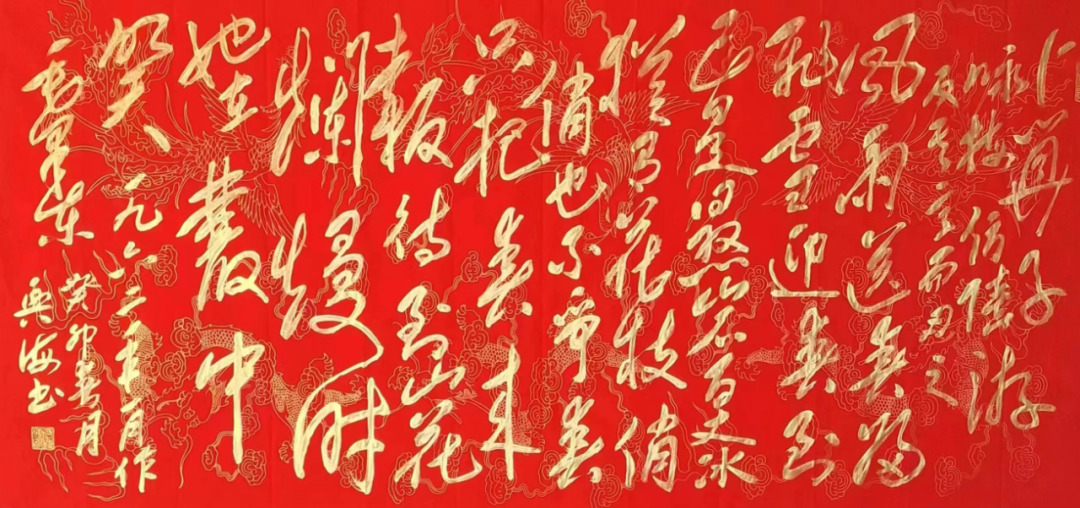 卜算子
咏梅仿陆游
反其意而用之
风雨送春归
飞雪迎春到
已是悬崖百丈冰
犹有花枝俏
俏也不争春
只把春来
报待到山花
烂熳时
她在丛中
笑
一九六一年十二月作
毛泽东
癸卯春月
兴海书